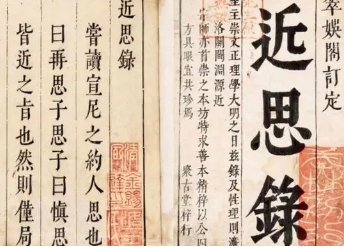 萃娛閣訂定
近思錄
聖主崇文正理學大明之日茲錄及性理則濂
洛關閩淵源近
亦首崇之本坊特求善本精梓以公四
方具眼宜共珍焉
聚古堂梓行
近思錄
嘗讀宣尼之約人思也
曰再思子思子曰慎思
皆近之旨也然則僅局